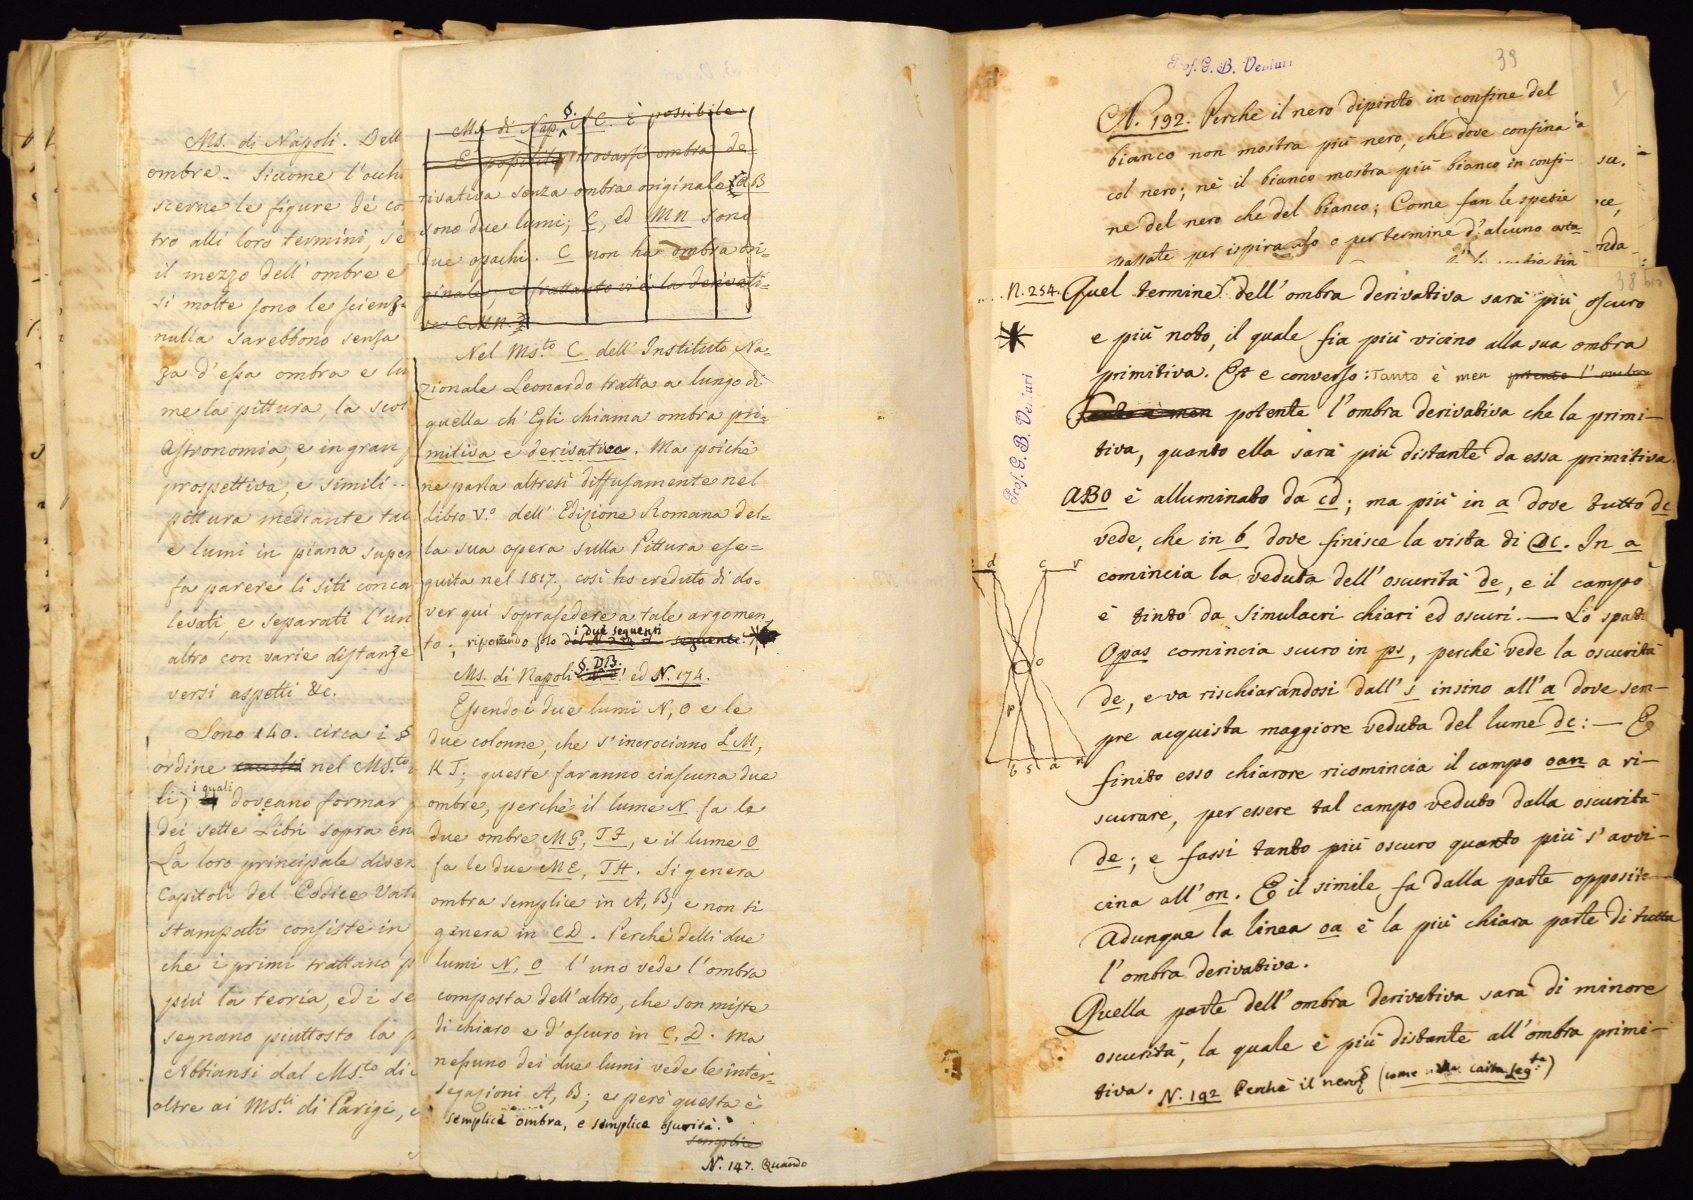 Ms. di Napoli. Dell
ombre. Siccome l'occh
scerne le figure de' co
tro alli loro termini, se
il mezzo dell'ombre e
si molte sono le scienz
nulla sarebbono senza
za d'essa ombra e lu
me la pittura, la scol
Astronomia, e in gran p
prospettiva, e simili
pittura mediante tal
e lumi in piana super
fa parere li siti conca
levati, e separati l'un
altro con varie distanze
versi aspetti &c.
Sono 140. circa i §
ordine nel Ms.to
li; i quali doveano formar
dei sette Libri sopra en
La loro principale diver
Capitoli del Codice Vati
stampati consiste in
che i primi trattano p
più la teoria, ed i se
segnano piuttosto la p
Abbiansi dal Ms.to di
oltre ai Ms.ti di Parigi,
Ms. di Nap. §. AC. È possibile
È possibile trovarsi ombra de=
rivativa senza ombra originale. AB
sono due lumi; C, ed MN sono
due opachi. C non ha ombra ori=
ginale, e frattanto vi è la derivati=
va CMN.
Nel Ms.to C dell'Instituto Na=
zionale Leonardo tratta a lungo di
quella ch'Egli chiama ombra pri=
mitiva e derivativa. Ma poichè
ne parla altresì diffusamente nel
Libro V.o dell'Edizione Romana del=
la sua opera sulla Pittura ese=
guita nel 1817; così ho creduto di do=
ver qui soprasedere a tale argomen
to; riportando solo i due seguenti
Ms. di Napoli §. DB. ed N. 174.
Essendo i due lumi N, O e le
due colonne, che s'incrociano LM,
KI; queste faranno ciascuna due
ombre, perchè il lume N fa le
due ombre MG, IF, e il lume O
fa le due ME, IH. Si genera
ombra semplice in A, B, e non si
genera in CD. Perchè delli due
lumi N, O l'uno vede l'ombra
composta dell'altro, che son miste
di chiaro e d'oscuro in C, D. Ma
nessuno dei due lumi vede le inter=
segazioni A, B; e però questa è
semplice ombra, e semplice oscurità.
semplice
N. 147. Quando
Prof. G. B. Venturi
39
N. 192. Perchè il nero dipinto in confine del
bianco non mostra più nero, che dove confina
col nero; nè il bianco mostra più bianco in confi-
ne del nero che del bianco; Come fan le spezie
passate per ispiracolo o per termine d'alcuno osta-
38 bis
N. 254. Quel termine dell'ombra derivativa sarà più oscuro
e più noto, il quale fia più vicino alla sua ombra
primitiva. Et e converso: Tanto è men potente l'ombra
Tanto è men potente l'ombra derivativa che la primi-
tiva, quanto ella sarà più distante da essa primitiva.
Prof. G. B. Venturi
ABO è alluminato da cd; ma più in a dove tutto dc
vede, che in b dove finisce la vista di DC. In a
comincia la veduta dell'oscurità de, e il campo
è tinto da simulacri chiari ed oscuri. — Lo spat.
Opas comincia scuro in ps, perchè vede la oscurità
de, e va rischiarandosi dall's insino all'a dove sem-
pre acquista maggiore veduta del lume dc: — E
finito esso chiarore ricomincia il campo oan a ri-
scurare, per essere tal campo veduto dalla oscurità
de; e fassi tanto più oscuro quanto più s'avvi-
cina all'on. E il simile fa dalla parte opposita
Adunque la linea oa è la più chiara parte di tutta
l'ombra derivativa.
Quella parte dell'ombra derivativa sarà di minore
oscurità, la quale è più distante all'ombra primi-
tiva. N. 192 Perchè il nero § (come alla carta seg.te)
d c r
o
p
b s a n